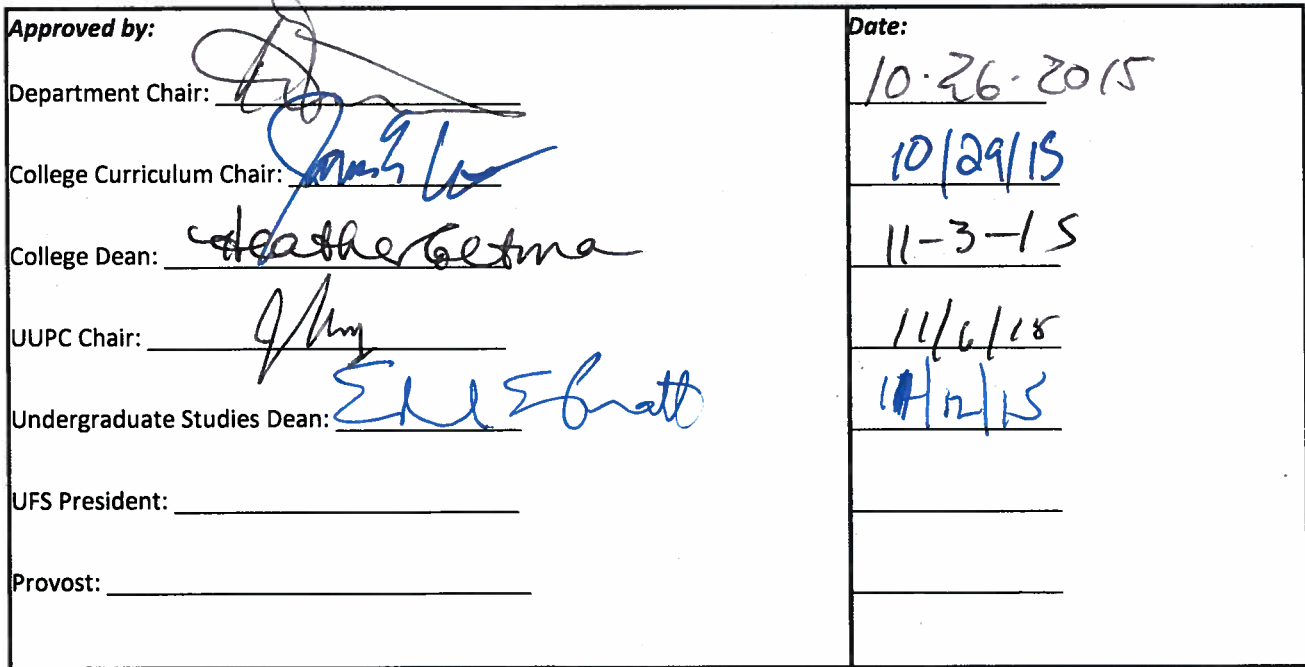 Approved by: Date:
Department Chair: 10-26-2015
College Curriculum Chair: 10/29/15
College Dean: Heather 11-3-15
UUPC Chair: 11/6/15
Undergraduate Studies Dean: 11/12/15
UFS President:
Provost: